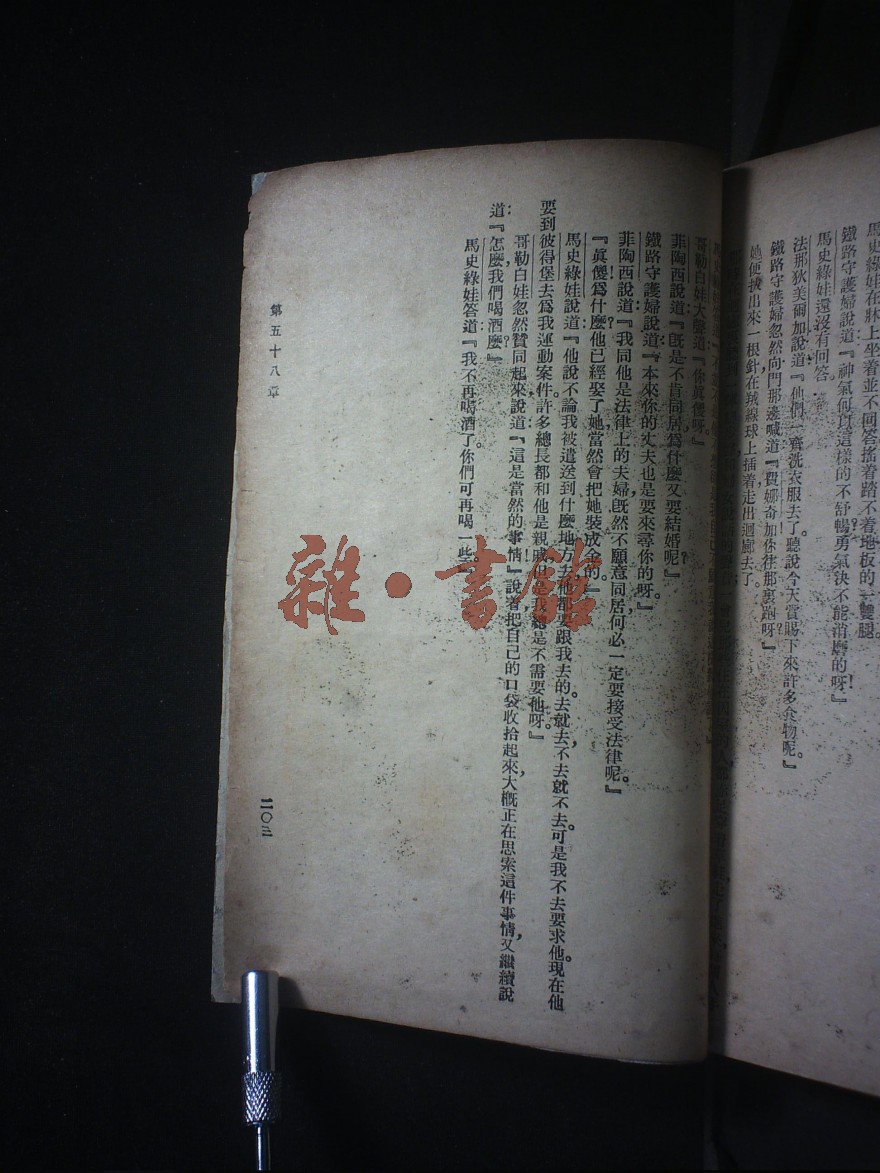 馬史綠娃在牀上坐着並不回答搖着踏不着地板的一雙腿。
鐵路守護婦說道：『神氣何貴這樣的不舒暢？勇氣決不能消磨的呀！』
馬史綠娃還沒有回答。
法那狄美爾加說道：『他們一齊洗衣服去了。聽說今天賞賜下來許多食物呢。』
鐵路守護婦忽然向門那邊喊道：『費娜奇加你往那裏跑呀？』
她便拔出來一根針在絨線球上插着，走出迴廊去了。
哥勒白娃大聲道：『你眞優呀。』
菲陶西說道：『旣是不肯同居爲什麼又要結婚呢？』
鐵路守護婦說道：『本來你的丈夫也是要來尋你的呀。』
菲陶西說道：『我同他是法律上的夫婦，旣然不願意同居，何必一定要接受法律呢。』
『眞優！爲什麼？他已經娶了她，當然會把她裝成金的。』
馬史綠娃說道：『他說不論我被遣送到什麼地方去，他都要跟我去的。去就去，不去就不去。可是我不去要求他。現在他
要到彼得堡去爲我運動案件。許多總長都和他是親戚，但是我總是不需要他呀。』
哥勒白娃忽然贊同起來，說道：『這是當然的事情！』說着把自己的口袋收拾起來，大概正在思索這件事情，又繼續說
道：『怎麼，我們喝酒麼？』
馬史綠娃答道：『我不再喝酒了。你們可再喝一些。』
第五十八章
二〇三
雜·書館